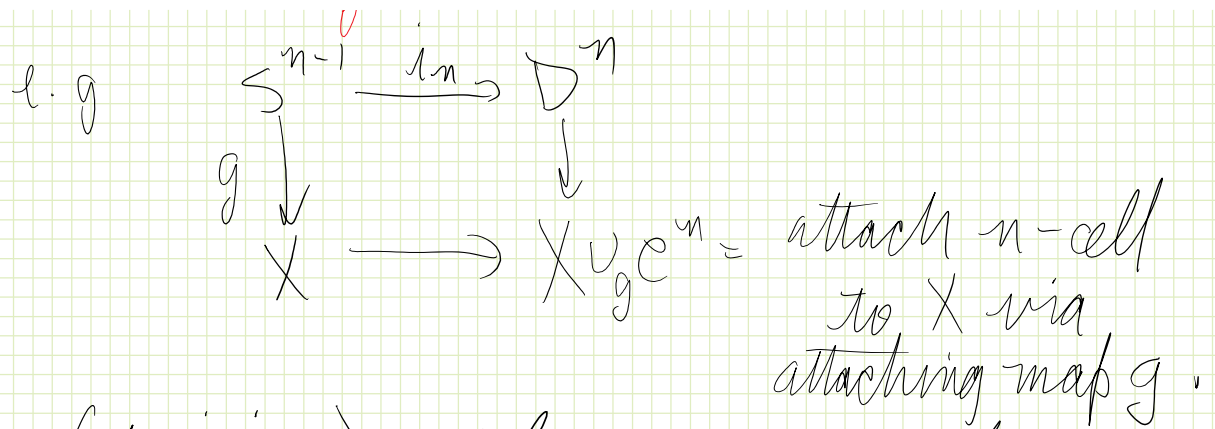 e.g S^{n-1} \xrightarrow{i_n} D^n
g
X → X ∪_g e^n = attach n-cell
to X via
attaching map g.